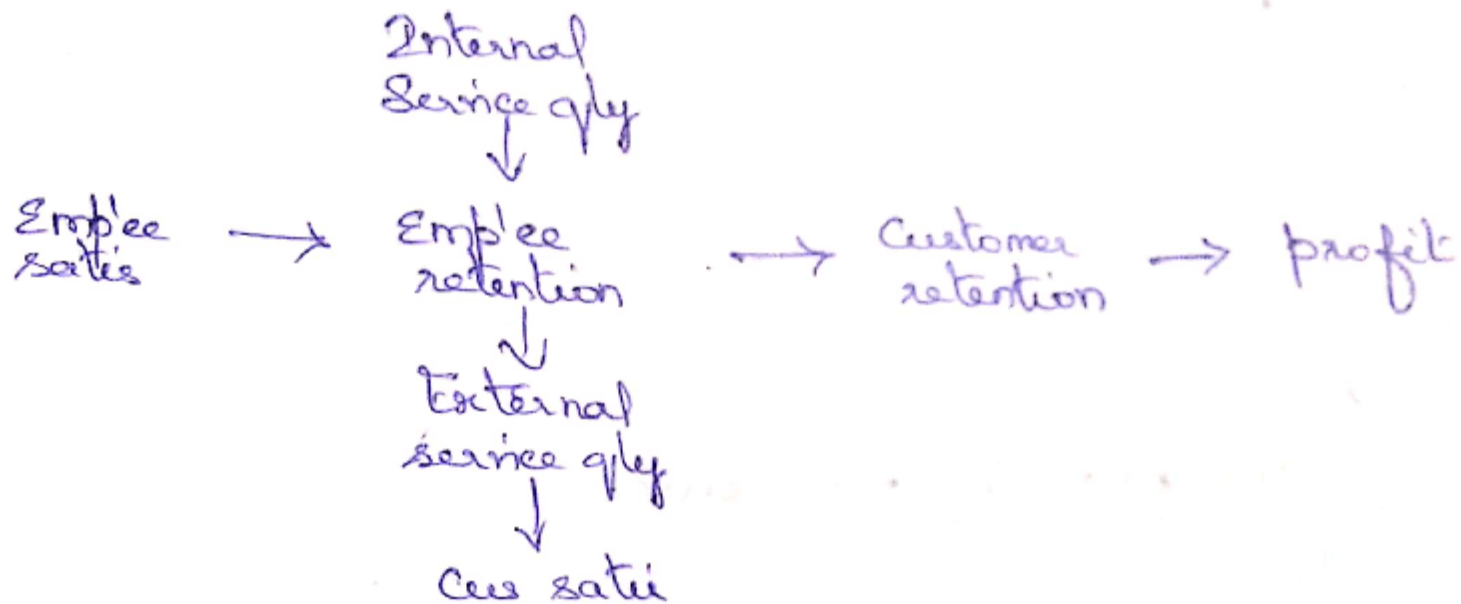 Internal
Service qly
Emp'ee
satis
Emp'ee
retention
Customer
retention
profit
External
service qly
Cus satis